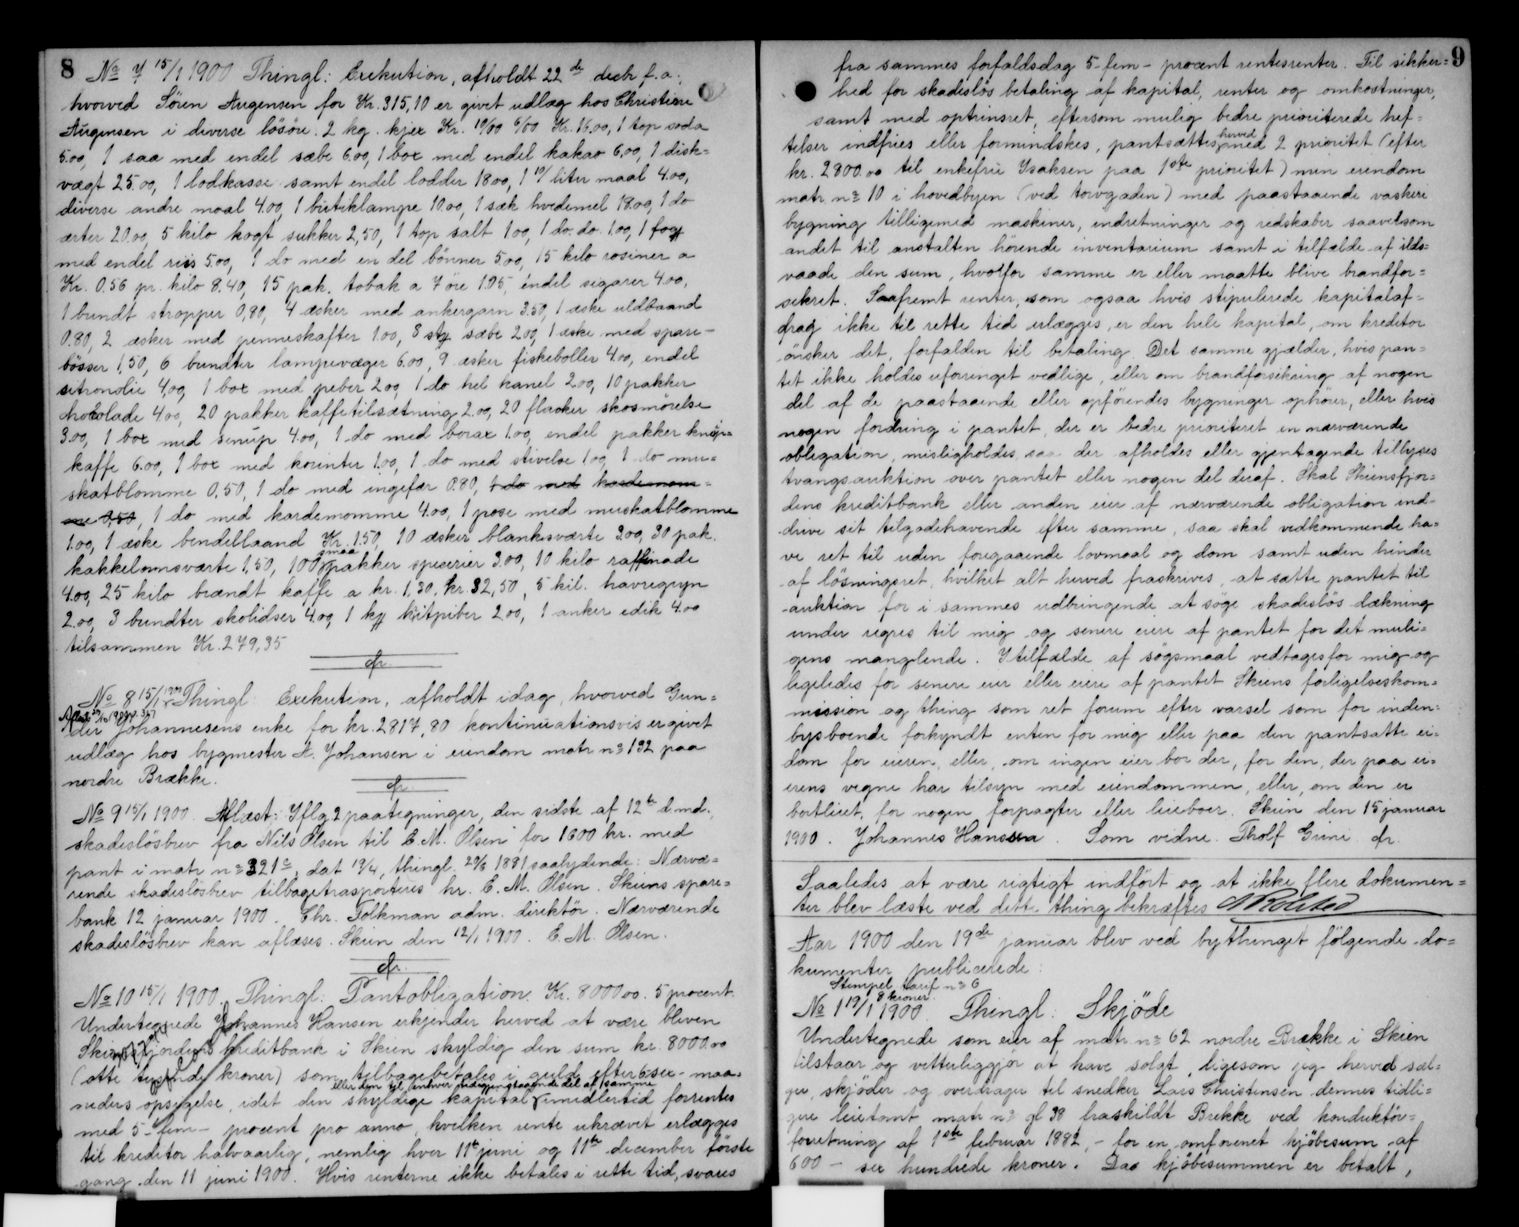 8
No 7 15/1 1900 Thingl: Exekution, afholdt 22de decb. f. a.
hvorved Sören Aŭgensen for Kr. 315,10 er givet udlæg hos Christian
Aŭgensen i diverse lösöre. 2 kg. kjex Kr. 16,00, 1 top soda
5.00, 1 saa med endel sæbe 6.00, 1 box med endel kakao 6,00, 1 disk=
vægt 25.00, 1 lodkasse samt endel lodder 18.00, 1 10/ liter maal 4.00,
diverse andre maal 4.00, 1 butiklampe 10.00, 1 sæk hvedemel 18.00, 1 do
ærter 20.00, 5 kilo hogt sukker 2,50, 1 top salt 1.00, 1 do. do. 1.00, 1 fog
med endel riis 5.00, 1 do med en del bönner 5.00, 15 kilo rosiner a
Kr. 0.56 pr. kilo 8.40, 15 pak. tobak a 7 öre 1.05, endel sigarer 4.00,
1 bundt stropper 0,80, 4 æsker med ankergarn 3.50, 1 æske uldbaand
0.80, 2 æsker med penneskafter 1.00, 8 stg sæbe 2.00, 1 æske med spare-
bösser 1,50, 6 bundter lampevæger 6.00, 9 æsker fiskeboller 4.00, endel
sitronolie 4,00, 1 box med peber 2.00, 1 do hel kanel 2.00, 10 pakker
chokolade 4.00, 20 pakker kaffetilsætning 2.00, 20 flasker skosmörelse
3.00, 1 box med senŭp 4.00, 1 do med borax 1.00, endel pakker knüp=
kaffe 6.00, 1 box med korinter 1.00, 1 do med stivelse 1.00, 1 do mu=
skatblomme 0.50, 1 do med ingefær 0.80, 1 do med kardemom=
me 0,50, 1 do med kardemomme 4.00, 1 pose med muskatblomme
1.00, 1 æske bendelbaand Kr. 1.50, 10 æsker blanksværte 3.00, 30 pak.
kakkelovnsværte 1.50, 100 smaa pakker spicerier 3.00, 10 kilo raffinade
4.00, 25 kilo brændt kaffe a kr. 1,30, kr. 32,50, 5 kil. havregryn
2.00, 3 bundter skolidser 4.00, 1 kg kritpiber 2.00, 1 anker edik 4.00
tilsammen Kr. 279,35
cfr.
No 8 15/1 1900 Thingl: Exekution, afholdt idag, hvorved Gun=
der Johannesens enke for kr. 2817,80 kontinuationsvis er givet
udlæg hos bygmester A. Johansen i eiendom matr no 132 paa
nordre Brække.
cfr.
No 9 15/1 1900. Aflæst: Iflg. 2 paategninger, den sidste af 12te d.md.
skadeslösbrev fra Nils Olsen til E. M. Olsen for 1600 kr. med
pant i matr no 321c, dat 19/4, thingl. 29/8 1881 saalydende: Nærvæ=
rende skadeslösbrev tilbagetrasporteres hr. E. M. Olsen. Skiens spare=
bank 12 januar 1900. Chr. Folkman adm. direktör. Nærværende
skadeslösbrev kan aflæses. Skien den 12/1 1900. E. M. Olsen.
cfr.
No 10 15/1 1900. Thingl: Pantobligation. Kr. 8000.00. 5 procent.
Undertegnede Johannes Hansen erkjender herved at være bleven
Skiensfjordens kreditbank i Skien skyldig den sum kr. 8000.00
(otte tusinde kroner) som tilbagebetales i guld efter 6-sex- maa=
eller den til enhver tid gjenstaaende del af samme
neders opsigelse, idet den skyldige kapital imidlertid forrentes
med 5-fem- procent pro anno, hvilken rente ukrævet erlægges
til kreditor halvaarlig, nemlig hver 11te juni og 11te december förste
gang den 11 juni 1900. Hvis renterne ikke betales i rette tid, svares
9
fra sammes forfaldsdag 5-fem- procent rentesrenter. Til sikker=
hed for skadeslös betaling af kapital, renter og omkostninger,
samt med optrinsret, eftersom mulig bedre prioriterede hef=
telser indfries eller formindskes, pantsættes herved med 2 prioritet (efter
kr. 2800.00 til enkefru Isaksen paa 1ste prioritet) min eiendom
matr no 10 i hovedbyen (ved torvgaden) med paastaaende vaskeri
bygning tilligemed maskiner, indretninger og redskaber saavelsom
andet til anstalten hörende inventarium samt i tilfælde af ilds=
vaade den sum, hvorfor samme er eller maatte blive brandfor=
sikret. Saafremt renter, som ogsaa hvis stipulerede kapitalaf=
drag ikke til rette tid erlægges, er den hele kapital, om kreditor
önsker det, forfalden til betaling. Det samme gjælder, hvis pan=
tet ikke holdes uforringet vedlige, eller om brandforsikring af nogen
del af de paastaaende eller opförendes bygninger ophörer, eller hvis
nogen fordring i pantet, der er bedre prioriteret en nærværende
obligation, misligholdes, saa der afholdes eller gjentagende tillyses
tvangsauktion over pantet eller nogen del deraf. Skal Skiensfjor=
dens kreditbank eller anden eier af nærværende obligation ind=
drive sit tilgodehavende efter samme, saa skal vedkommende ha=
ve ret til uden foregaaende lovmaal og dom samt uden hinder
af lösningsret, hvilket alt herved fraskrives, at sætte pantet til
auktion for i sammes udbringende at söge skadeslös dækning
under regres til mig og senere eiere af pantet for det muli=
gens manglende. I tilfælde af sögsmaal vedtages for mig og
ligeledes for senere eier eller eiere af pantet Skiens forligelseskom=
mission og thing som ret forum efter varsel som for inden=
bysboende forkyndt enten for mig eller paa den pantsatte ei=
dom for eieren, eller, om ingen eier bor der, for den, der paa ei=
erens vegne har tilsyn med eiendommen, eller, om den er
bortleiet, for nogen forpagter eller leieboer. Skien den 15 januar
1900. Johannes Hanssen. Som vidne. Tholf Grini cfr.
Saaledes at være rigtigt indfört og at ikke flere dokumen=
ter blev læste ved dette thing bekræftes
Aar 1900 den 19de januar blev ved bythinget fölgende do=
kumenter publicerede:
Stempel tarif no 6
8 kroner
No 1 19/1 1900. Thingl: Skjöde
Undertegnede som eier af matr no 62 nordre Brække i Skien
tilstaar og vitterliggjör at have solgt, ligesom jeg herved sæl=
ger, skjöder og overdrager til snedker Lars Christensen dennes tidli=
gere leietomt matr no gl 38 fraskildt Brække ved konduktör=
forretning af 1ste februar 1882, - for en omforenet kjöbesum af
600 - sex hundrede kroner. Da kjöbesummen er betalt,